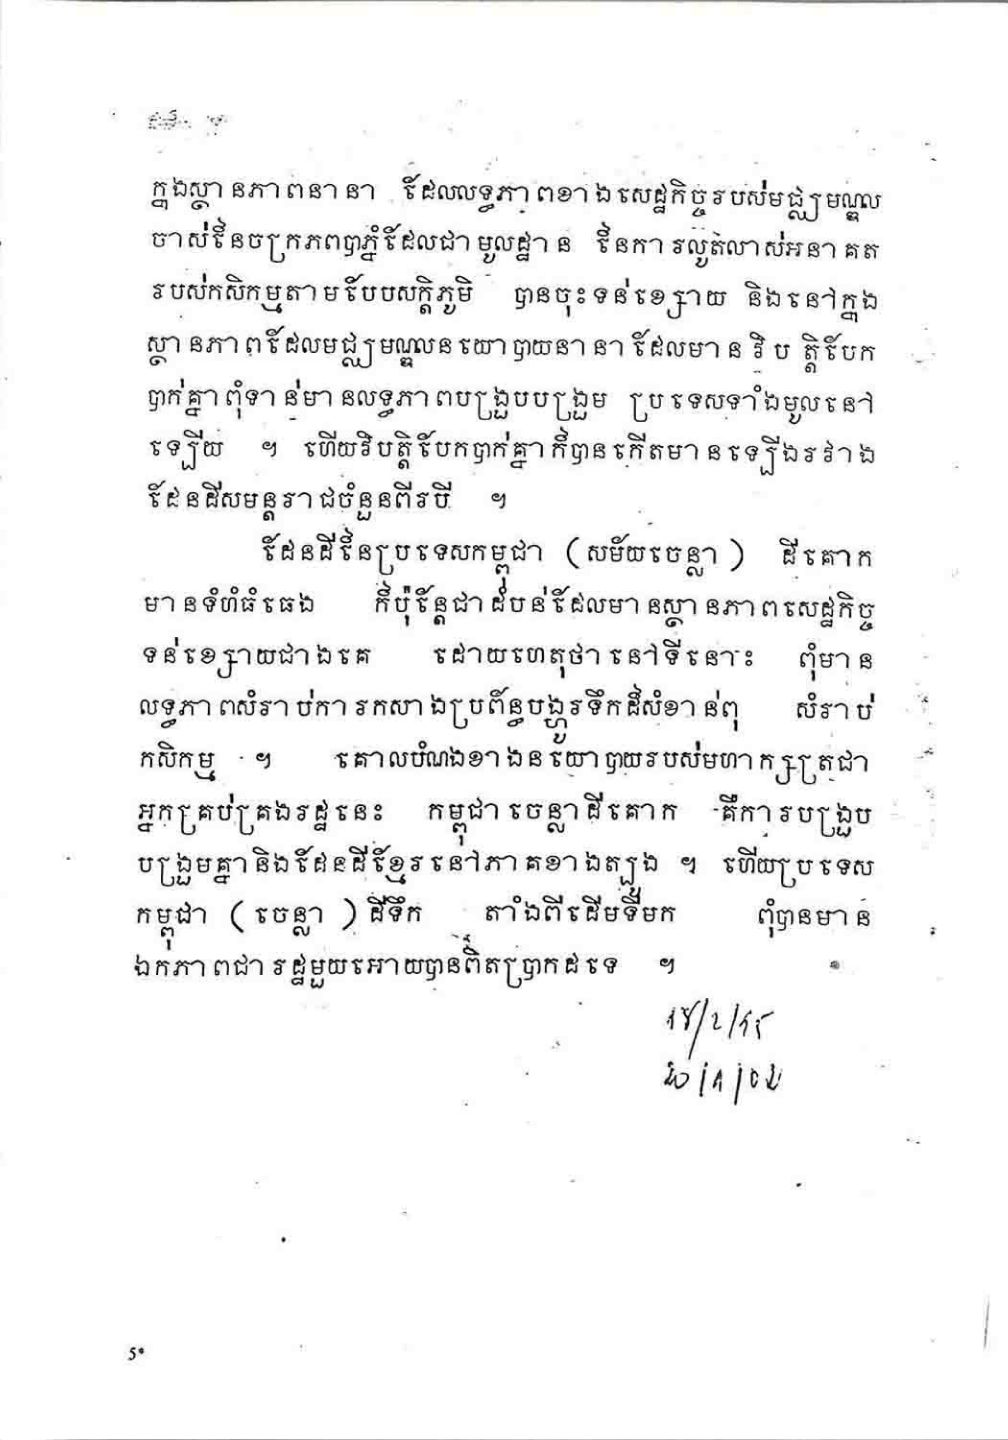 ក្នុងស្ថានភាពនានា ដែលលទ្ធភាពខាងសេដ្ឋកិច្ចរបស់មជ្ឈមណ្ឌល
ចាស់នៃចក្រភពបាភ្នំដែលជាមូលដ្ឋាន នៃការលូតលាស់អនាគត
របស់កសិកម្មតាមបែបសក្តិភូមិ បានចុះទន់ខ្សោយ និងនៅក្នុង
ស្ថានភាពដែលមជ្ឈមណ្ឌលនយោបាយនានាដែលមានវិបត្តិបែក
បាក់គ្នាពុំទាន់មានលទ្ធភាពបង្រួបបង្រួម ប្រទេសទាំងមូលនៅ
ឡើយ ។ ហើយវិបត្តិបែកបាក់គ្នាក៏បានកើតមានឡើងរវាង
ដែនដីសមន្តរាជចំនួនពីរបី ។
ដែនដីនៃប្រទេសកម្ពុជា (សម័យចេន្លា) ដីគោក
មានទំហំធំធេង ក៏ប៉ុន្តែជាដំបន់ដែលមានស្ថានភាពសេដ្ឋកិច្ច
ទន់ខ្សោយជាងគេ ដោយហេតុថានៅទីនោះ ពុំមាន
លទ្ធភាពសំរាប់ការកសាងប្រព័ន្ធបង្ហូរទឹកដ៏សំខាន់ពុ សំរាប់
កសិកម្ម ។ គោលបំណងខាងនយោបាយរបស់មហាក្សត្រជា
អ្នកគ្រប់គ្រងរដ្ឋនេះ កម្ពុជាចេន្លាដីគោក គឺការបង្រួប
បង្រួមគ្នានិងដែនដីខ្មែរនៅភាគខាងត្បូង ។ ហើយប្រទេស
កម្ពុជា (ចេន្លា) ដីទឹក តាំងពីដើមទីមក ពុំបានមាន
ឯកភាពជារដ្ឋមួយអោយបានពិតប្រាកដទេ ។
5*